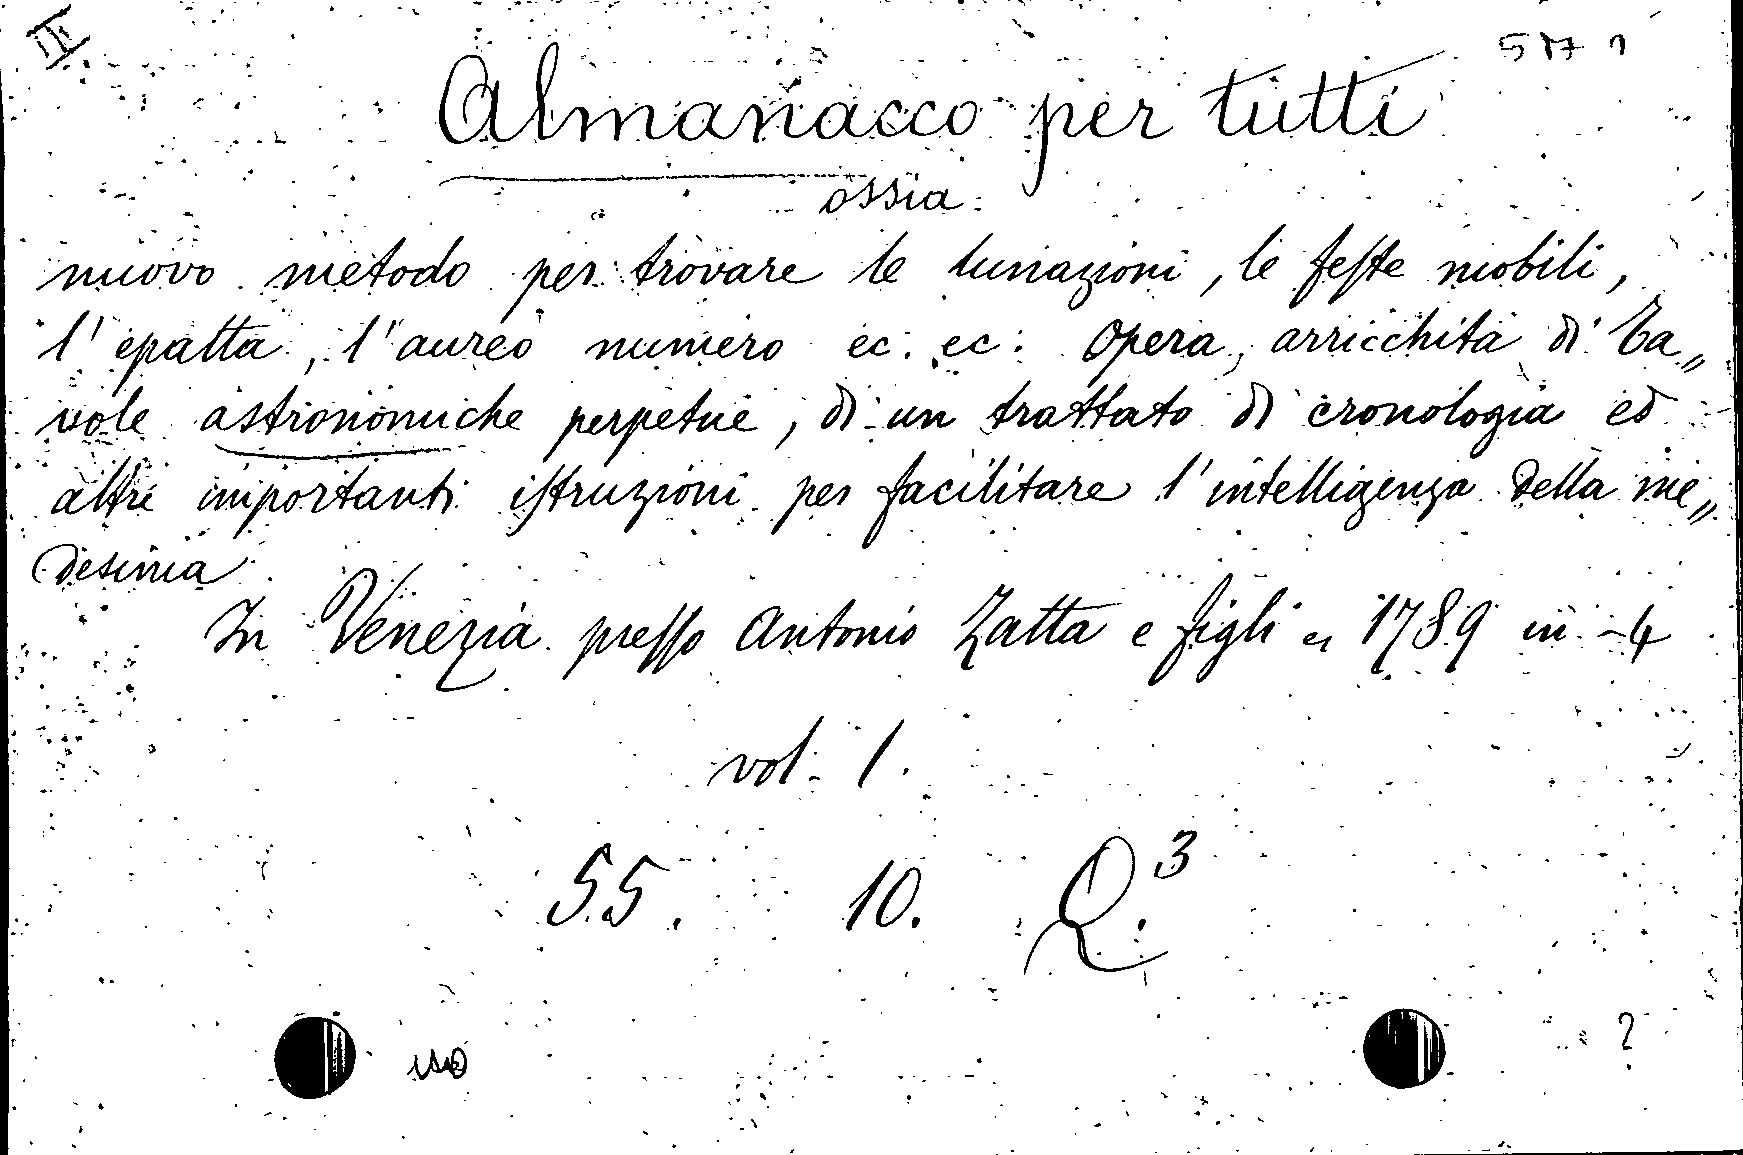 III
Almanacco per tutti
ossia
nuovo metodo per trovare le lunazioni, le feste mobili,
l'epatta, l'aureo numero ec. ec: Opera, arricchita di Ta„
vole astronomiche perpetue, di un trattato di cronologia ed
altre importanti istruzioni per facilitare l'intelligenza della me„
desima
In Venezia presso Antonio Zatta e figli 1789 in-4
vol. 1.
55. 10. Q.3
?